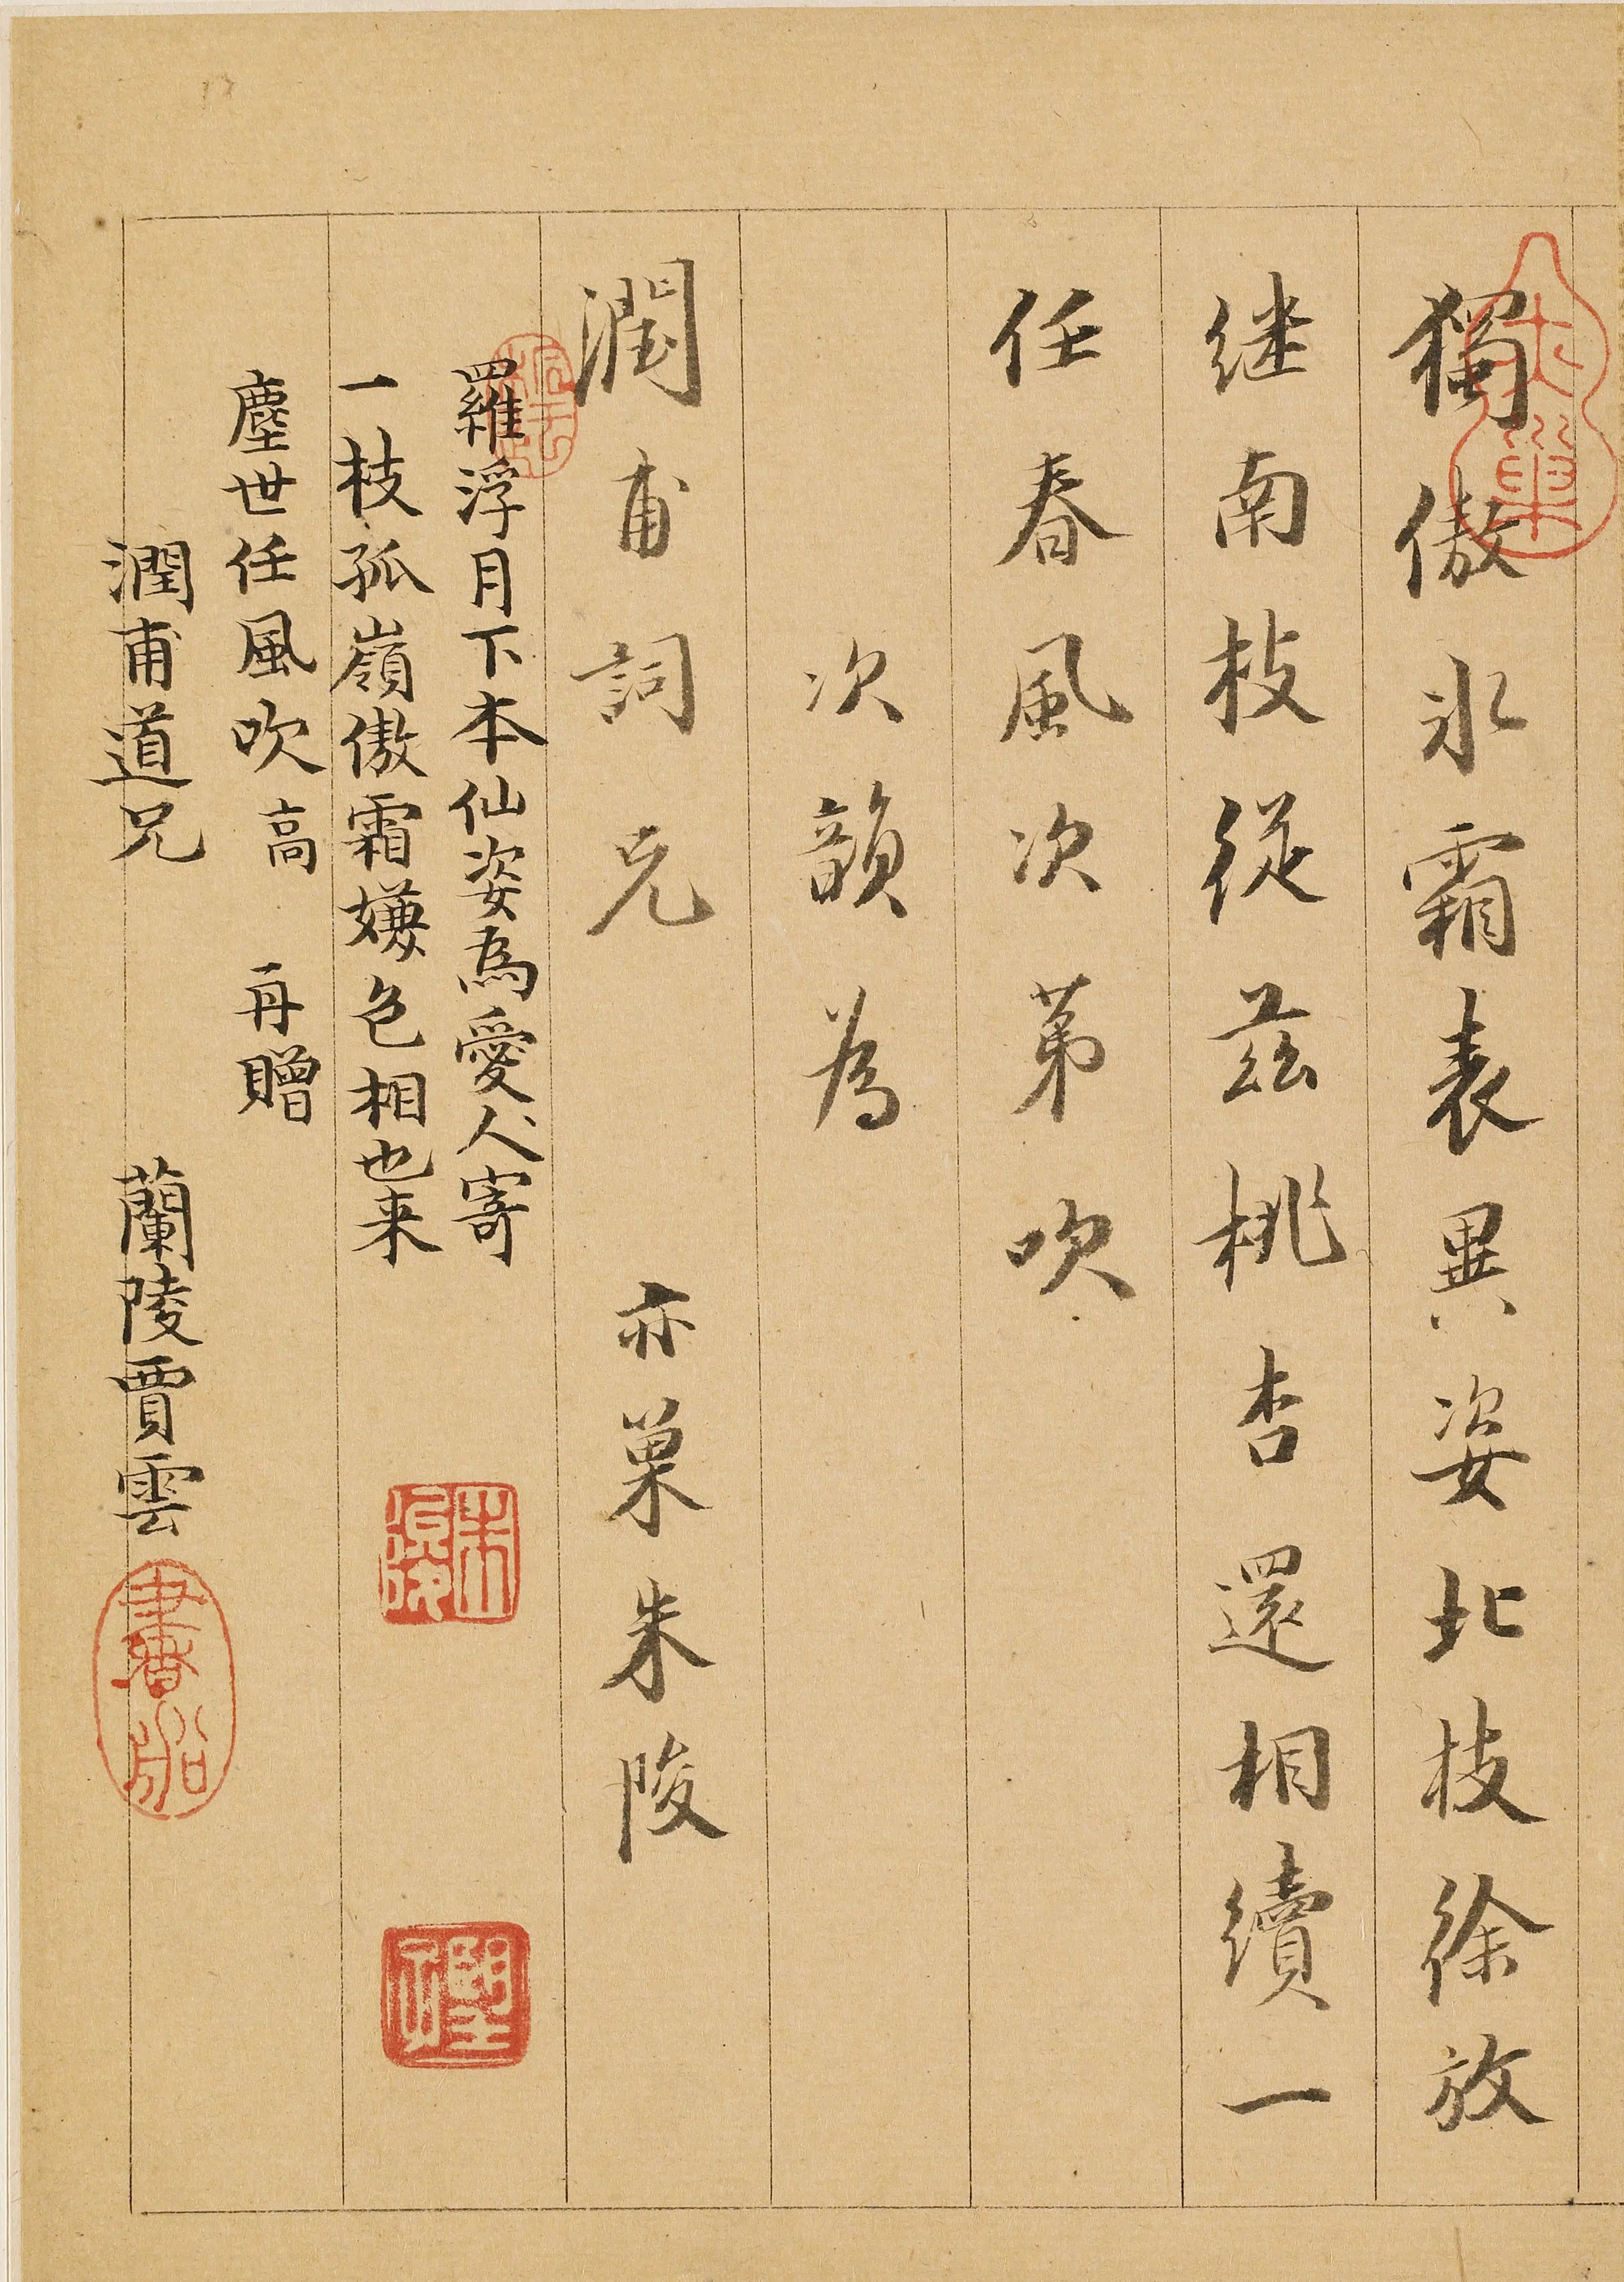 獨傲氷霜表異姿北枝徐放
继南枝從茲桃杏還相續一
任春風次苐吹
次韻為
潤甫詞兄 亦巢朱陵
羅浮月下本仙姿為愛人寄
一枝孤嶺傲霜嫌色相也来
塵世任風吹高 再贈
潤甫道兄 蘭陵賈雲
亦巢
朱陵
書船